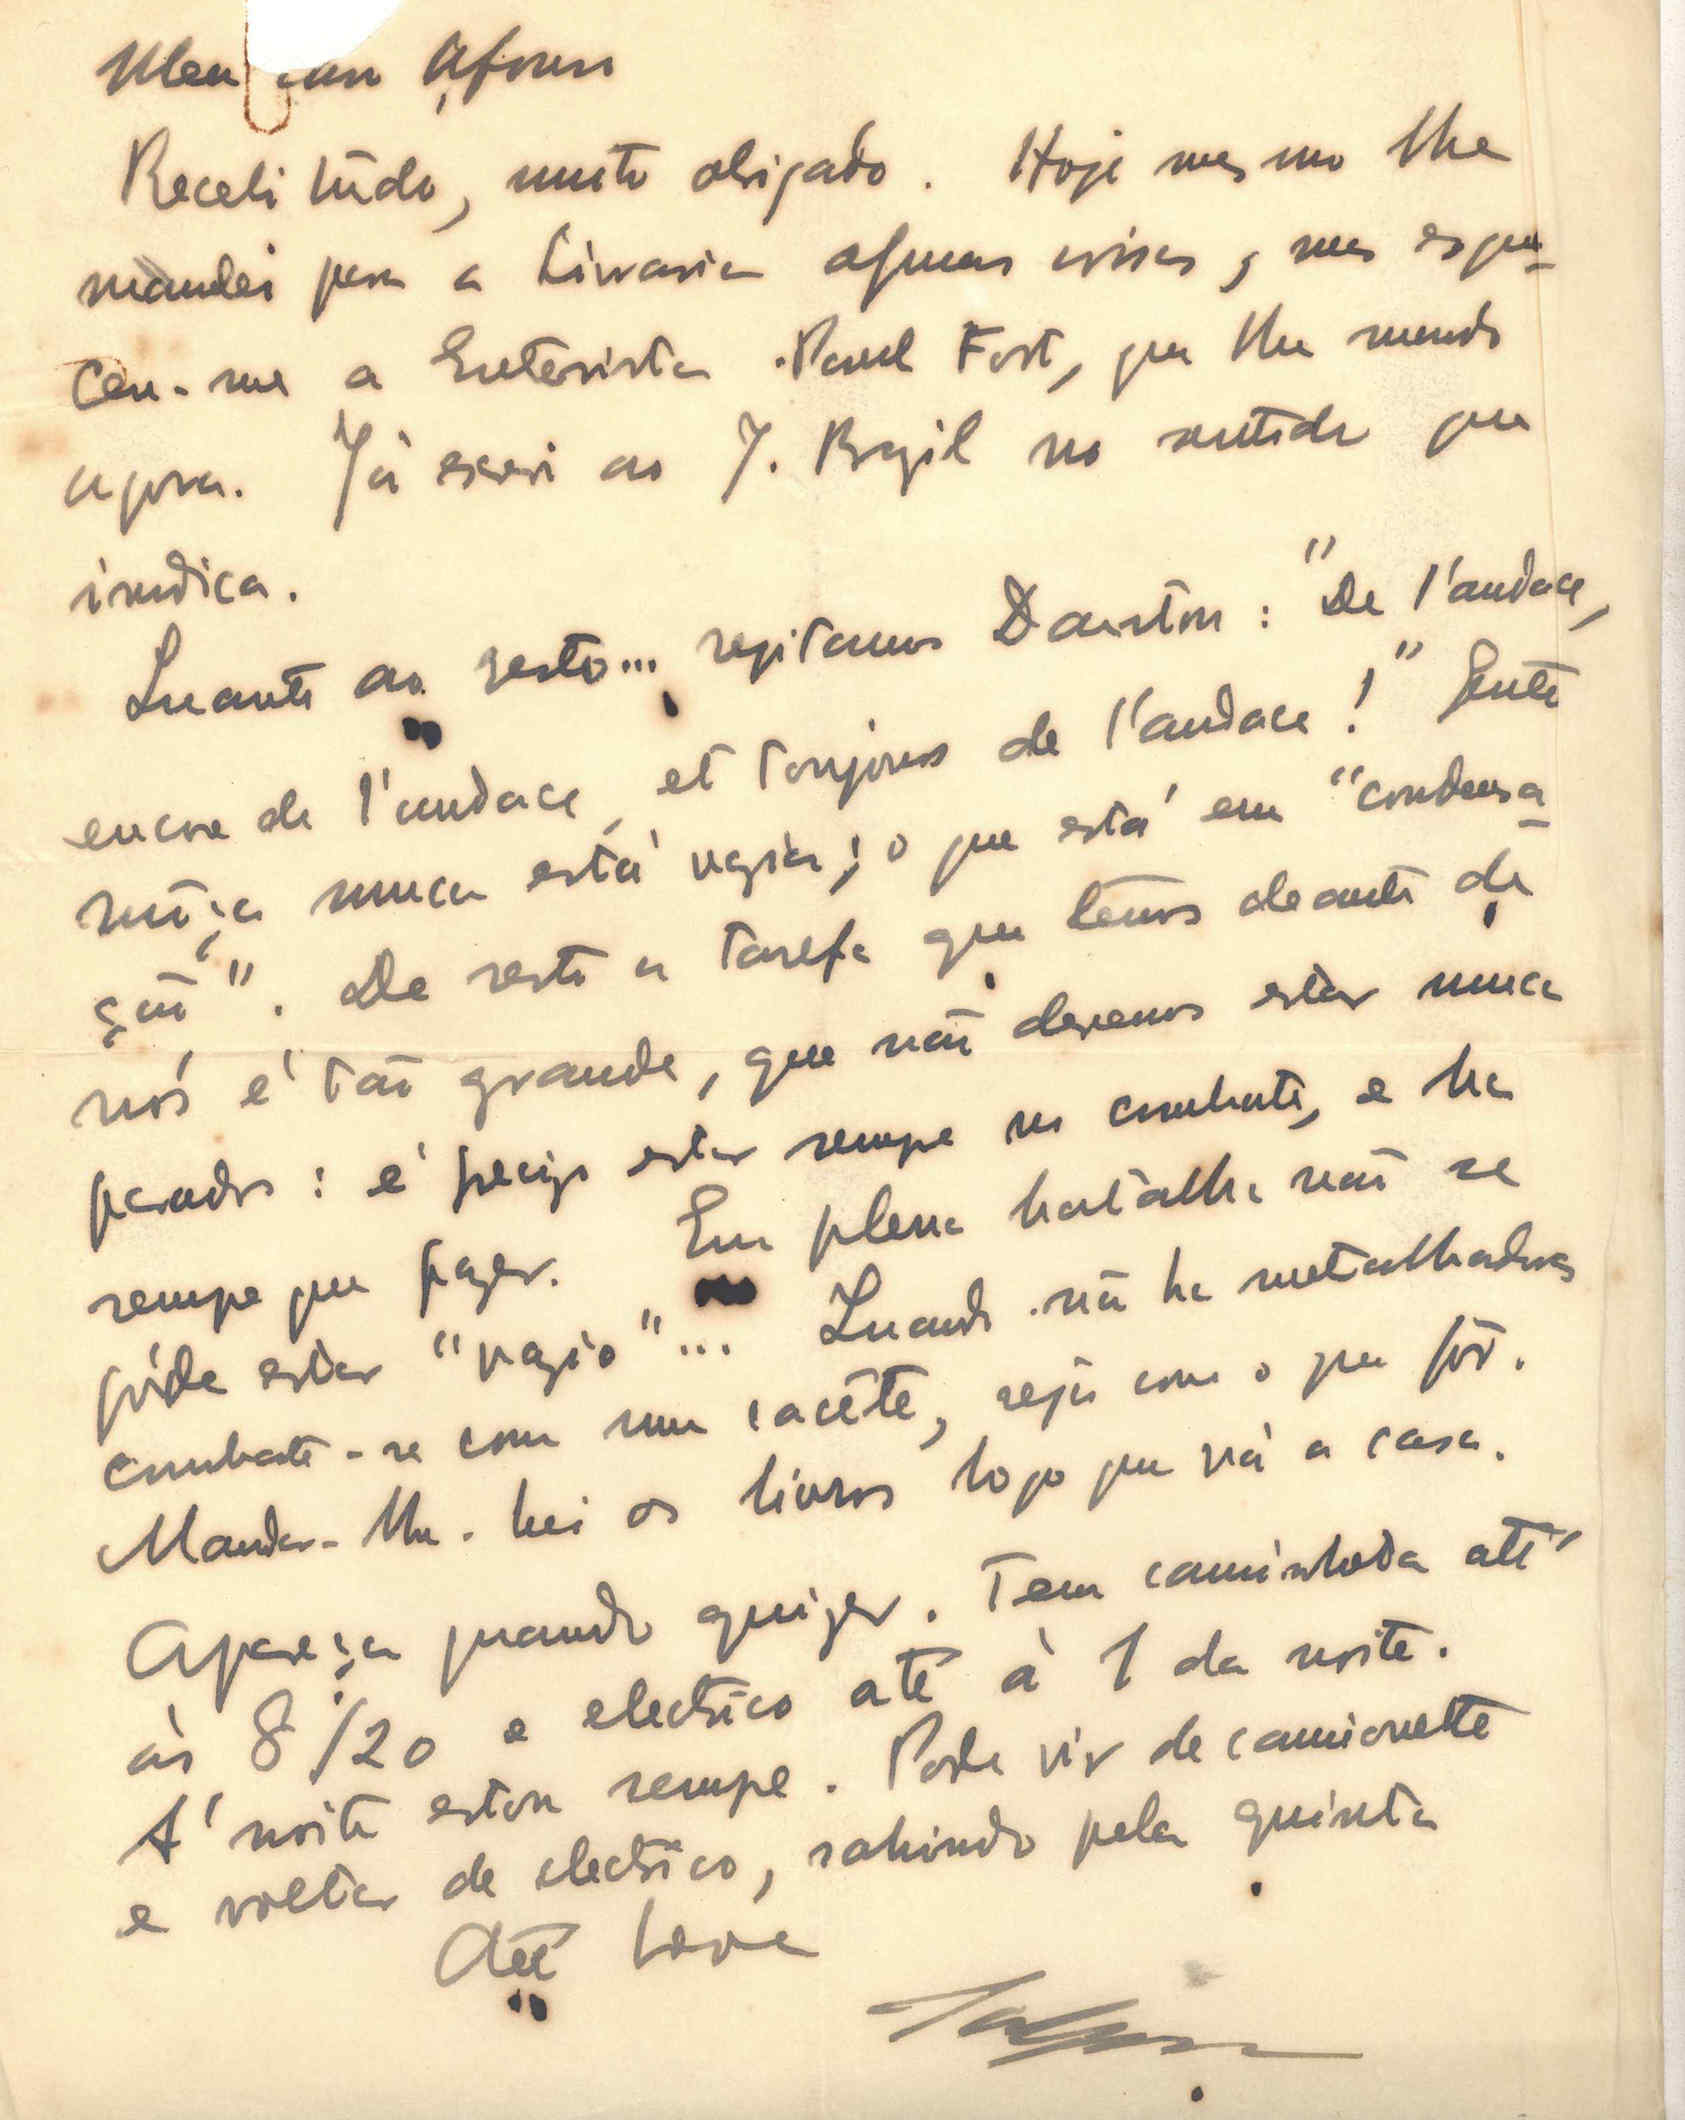 Meu caro Afonso
Recebi tudo, muito obrigado. Hoje mesmo lhe
mandei para a Livraria algumas coisas, mas esque-
ceu-me a Entrevista Paul Fort, que lhe mando
agora. Já escrevi ao J. Brazil no sentido que
indica.
Quanto ao resto... repitamos Danton: "De l'audace,
encore de l'audace, et toujours de l'audace!" Gente
môça nunca está vazia; o que está é em "condensa-
ção". De resto a tarefa que temos deante de
nós é tão grande, que não devemos estar nunca
parados: é preciso estar sempre no combate, e ha
sempre que fazer. Em plena batalha não se
póde estar "vazio"... Quando não ha metralhadoras
combate-se com um cacête, seja com o que fôr.
Mandar-lhe-hei os livros logo que vá a casa.
Apareça quando quizer. Tem caminheta até
às 8/20 e electrico até à 1 da noite.
A' noite estou sempre. Pode vir de camionette
e voltar de electrico, sahindo pela quinta
Até breve